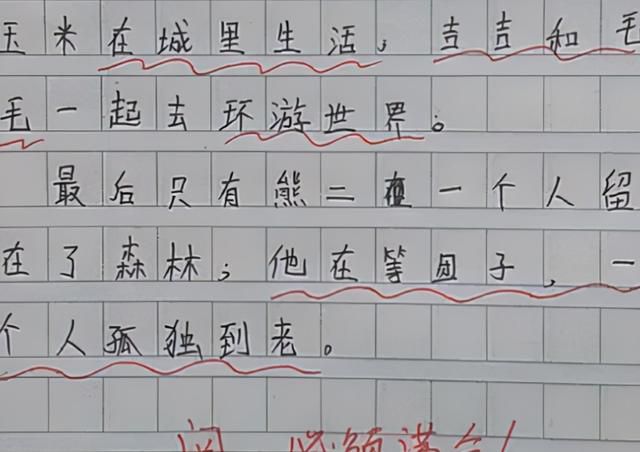 玉米在城里生活，吉吉和毛
毛一起去环游世界。
最后只有熊二一个人留
在了森林；他在等团子，一
个人孤独到老。
必须满分！